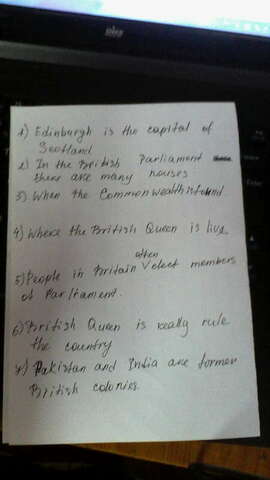 1) Edinburgh is the capital of
Scotland
2) In the British Parliament
there are many houses
3) When the Commonwealth
4) Where the British Queen is live
often
5) People in Britain elect members
of Parliament.
6) British Queen is really rule
the country
7) Pakistan and India are former
British colonies.